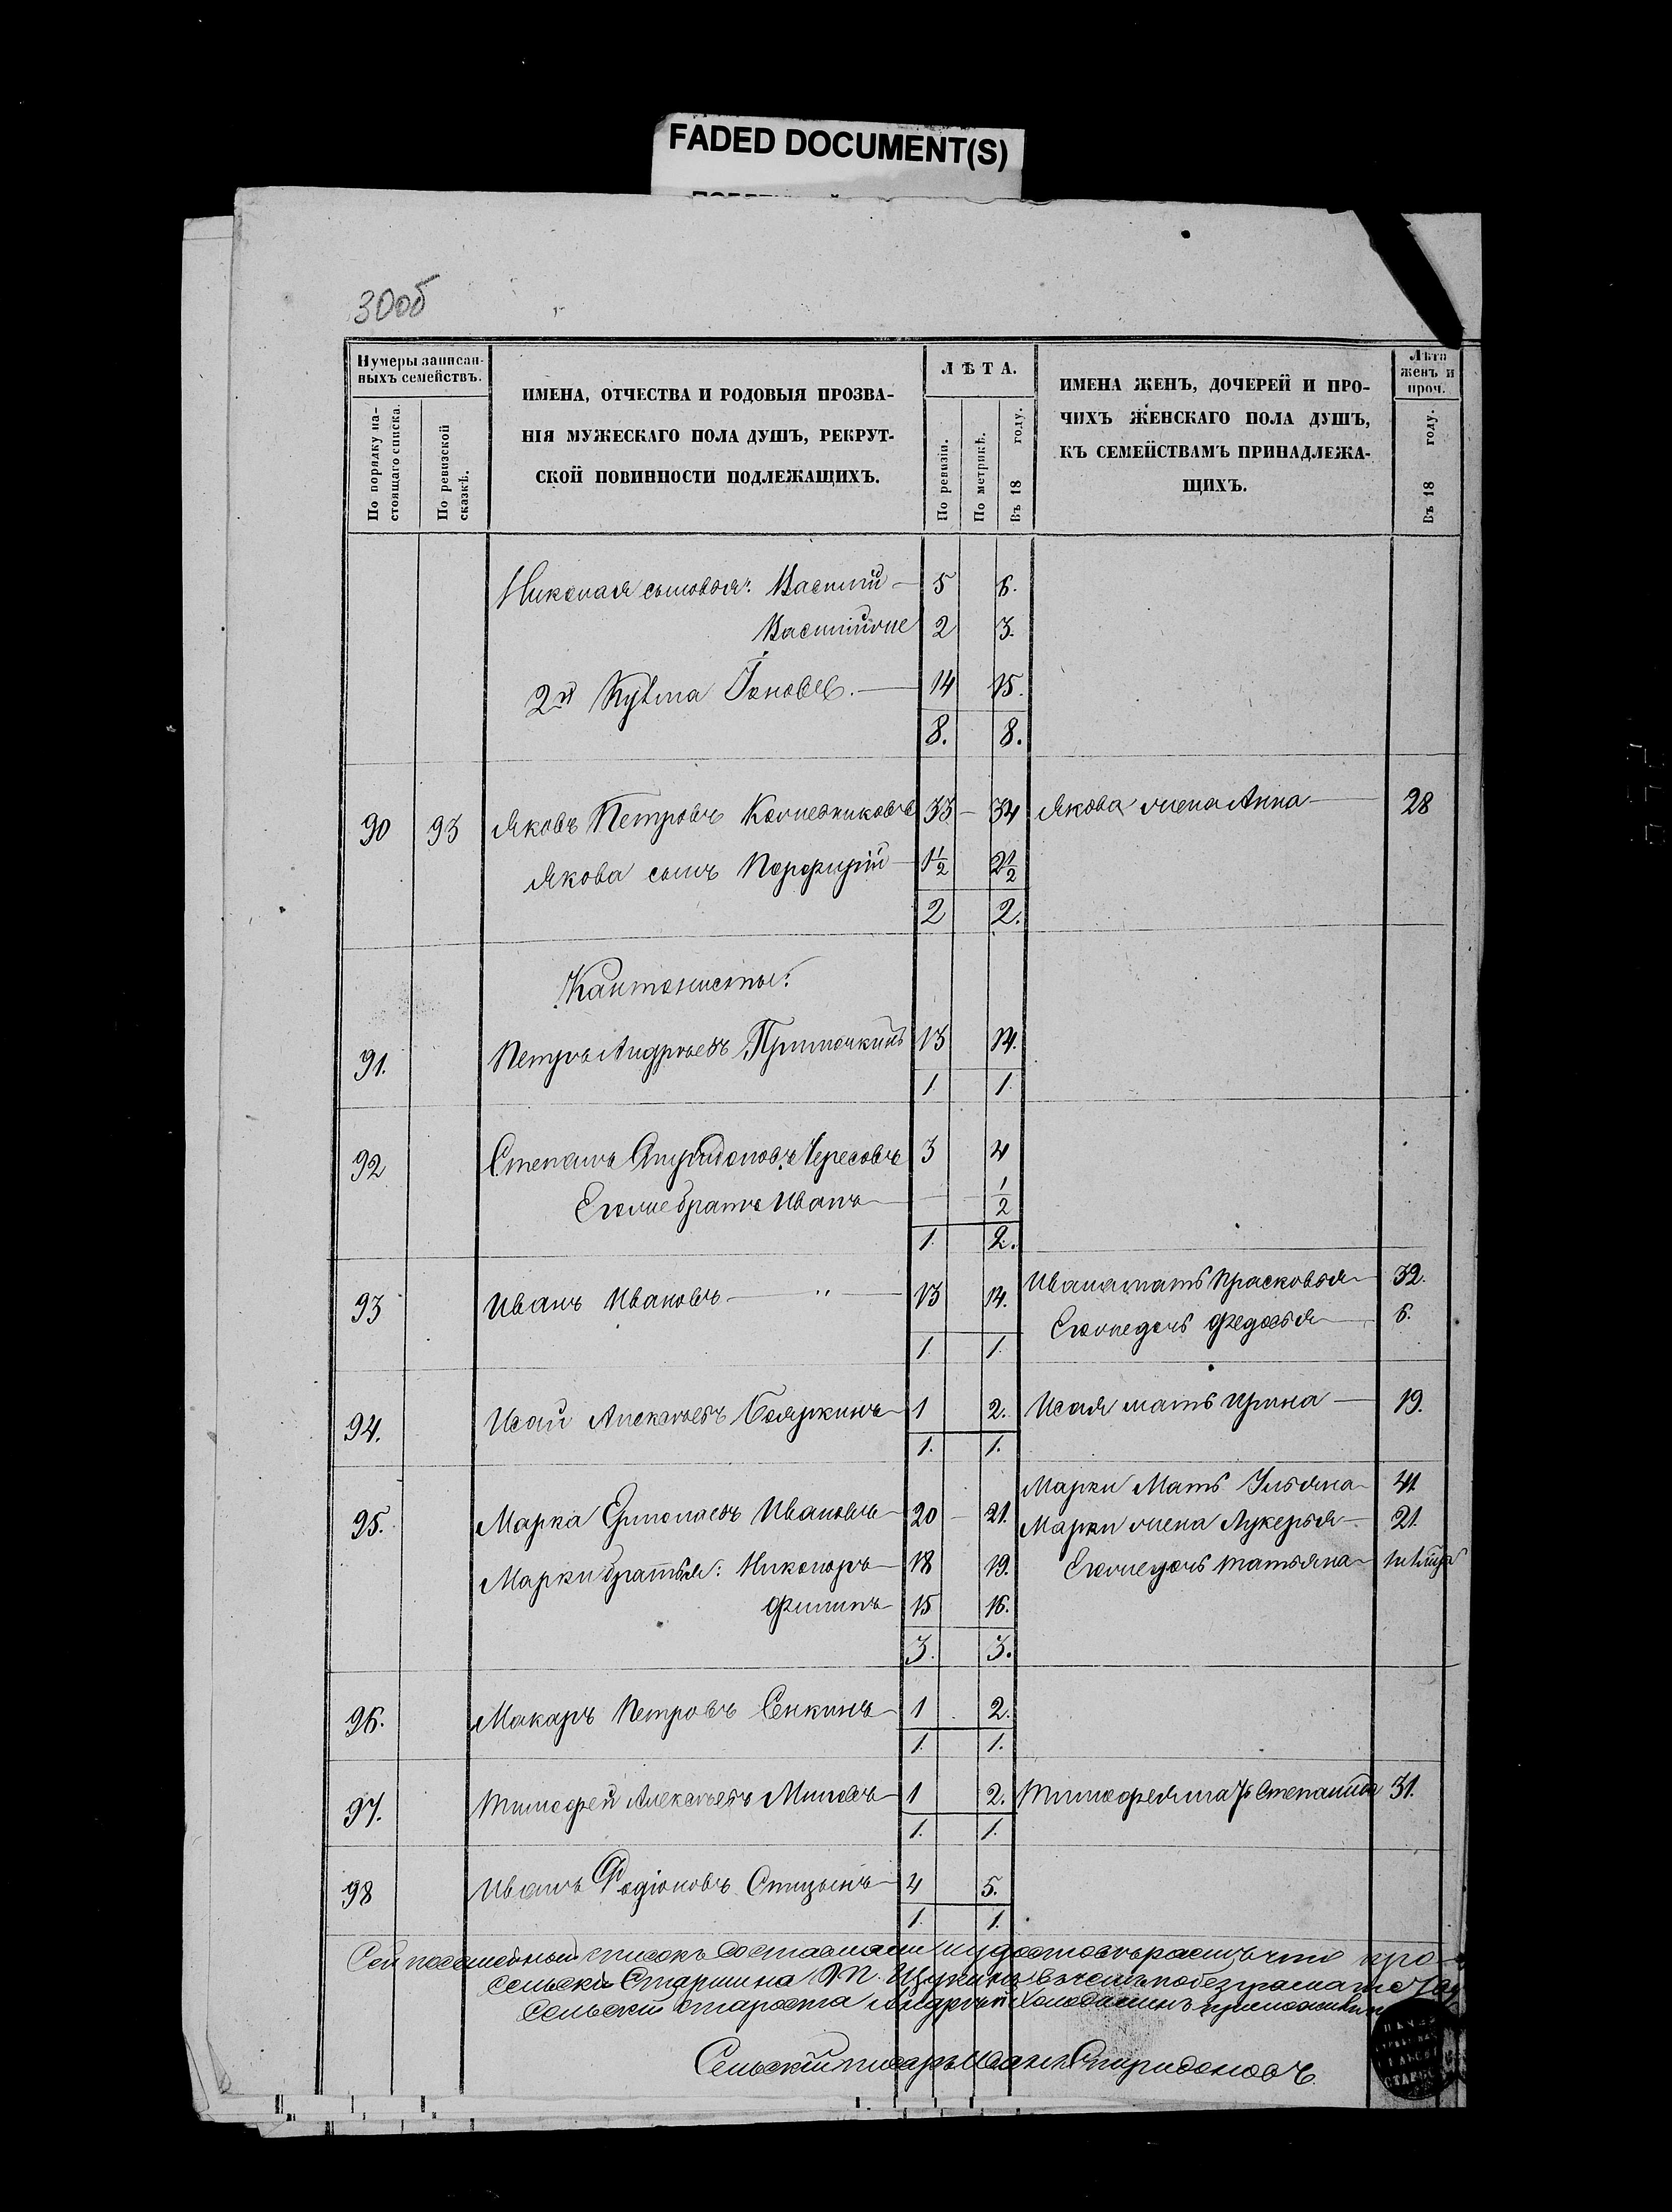 FADED DOCUMENT(S)
30об
Нумеры записан-
ныхъ семействъ.
По порядку на-
стоящаго списка.
По ревизской
сказкѣ.
ИМЕНА, ОТЧЕСТВА И РОДОВЫЯ ПРОЗВА-
НІЯ МУЖЕСКАГО ПОЛА ДУШЪ, РЕКРУТ-
СКОЙ ПОВИННОСТИ ПОДЛЕЖАЩИХЪ.
ЛѢТА.
По ревизіи.
По метрикѣ.
Въ 18 году.
ИМЕНА ЖЕНЪ, ДОЧЕРЕЙ И ПРО-
ЧИХЪ ЖЕНСКАГО ПОЛА ДУШЪ,
КЪ СЕМЕЙСТВАМЪ ПРИНАДЛЕЖА-
ЩИХЪ.
Лѣта
женъ и
проч.
Въ 18 году.
Николая сыновья: Василий 5 6.
Василийже 2 3.
2й Кузма Іоновъ. 14 15.
8. 8.
90 93 Яковъ Петровъ 33 34 Якова жена Анна 28
Якова сынъ Порфирій 1½ 2½
2 2.
Кантонисты:
91. Петръ Андреевъ 13 14.
1. 1.
92 Степанъ Спиридоновъ Чересовъ 3 4
Егоже братъ Иванъ ½
1. 2.
93 Иванъ Ивановъ " 13 14. Ивана мать Прасковья 32.
Егожедочь Федосья 6.
1. 1.
94. Исай Алексѣевъ Бояркинъ 1 2. Исая мать Ирина 19.
1. 1.
95. Марка Ермолаевъ Ивановъ 20 21. Марки Мать Ульяна 41
Марки жена Лукерья 21.
Марки братья: Никоноръ 18 19. Егожедочь Татьяна
Филипъ 15 16.
3. 3.
96. Макаръ Петровъ Сенкинъ 1 2.
1. 1.
97. Тимофей Алексѣевъ 1 2. Тимофея мать Степанида 31.
1. 1.
98 Иванъ Родіоновъ 4 5.
1. 1.
Сей посемейный списокъ составляли и удостовѣряемъ что
сельскій Старшина М. по безграмотству
Сельскій староста Андрей
Сельскійписарь Иванъ Спиридоновъ.